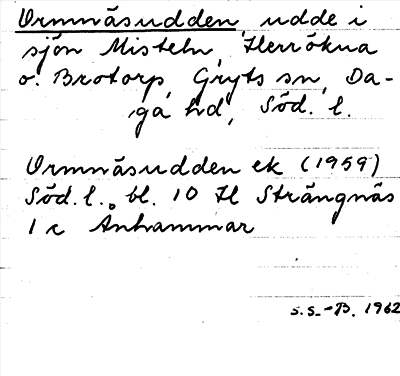 Ormnäsudden, udde i
sjön Misteln, Herrökna
o. Brotorp, Gryts sn, Da-
ga hd, Söd. l.
Ormnäsudden ek (1959)
Söd. l., bl. 10 H Strängnäs
1 c Anhammar
S.S.-B. 1962